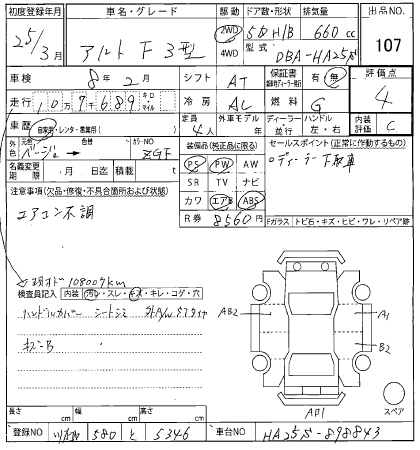 初度登録年月 車名・グレード 駆動 ドア数・形状 排気量 出品NO
25/3月 アルト F 3型 2WD 4WD 5D H/B 660cc 107
型式 DBA-HA25S
車検 8年2月 シフト AT 保証書 有 無 評価点 4
走行 10万7千689 キロ マイル 冷房 AC 燃料 G
車歴 自家用・レンタ・事業用( ) 定員 4人 外車モデル 年 ディーラー 並行 ハンドル 左・右 内装評価 C
外色 元色 ベージュ → 色替 カラーNO ZGF 装備品(純正品に限る) セールスポイント(正常に作動するもの)
名義変更期限 月 日迄 積載 t PS PW AW
○ディーラー下取車
注意事項(欠品・修復・不具合箇所および状態) SR TV ナビ
エアコン不調 カワ エアB ABS
R券 8560円 Fガラス トビ石・キズ・ヒビ・ワレ・リペア跡
現オド 108009km
検査員記入 内装 汚レ・スレ・キズ・キレ・コゲ・穴
ハンドルカバー シートシミ
AB2 A1
B2
AP1 スペア
長さ cm 幅 cm 高さ cm
登録NO 580 と 5346 車台NO HA25S-898843